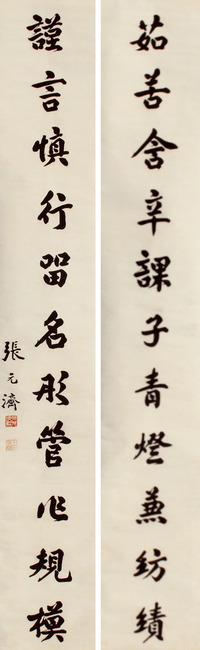 茹苦含辛課子青燈兼紡績
謹言慎行留名彤管作規模
張元濟